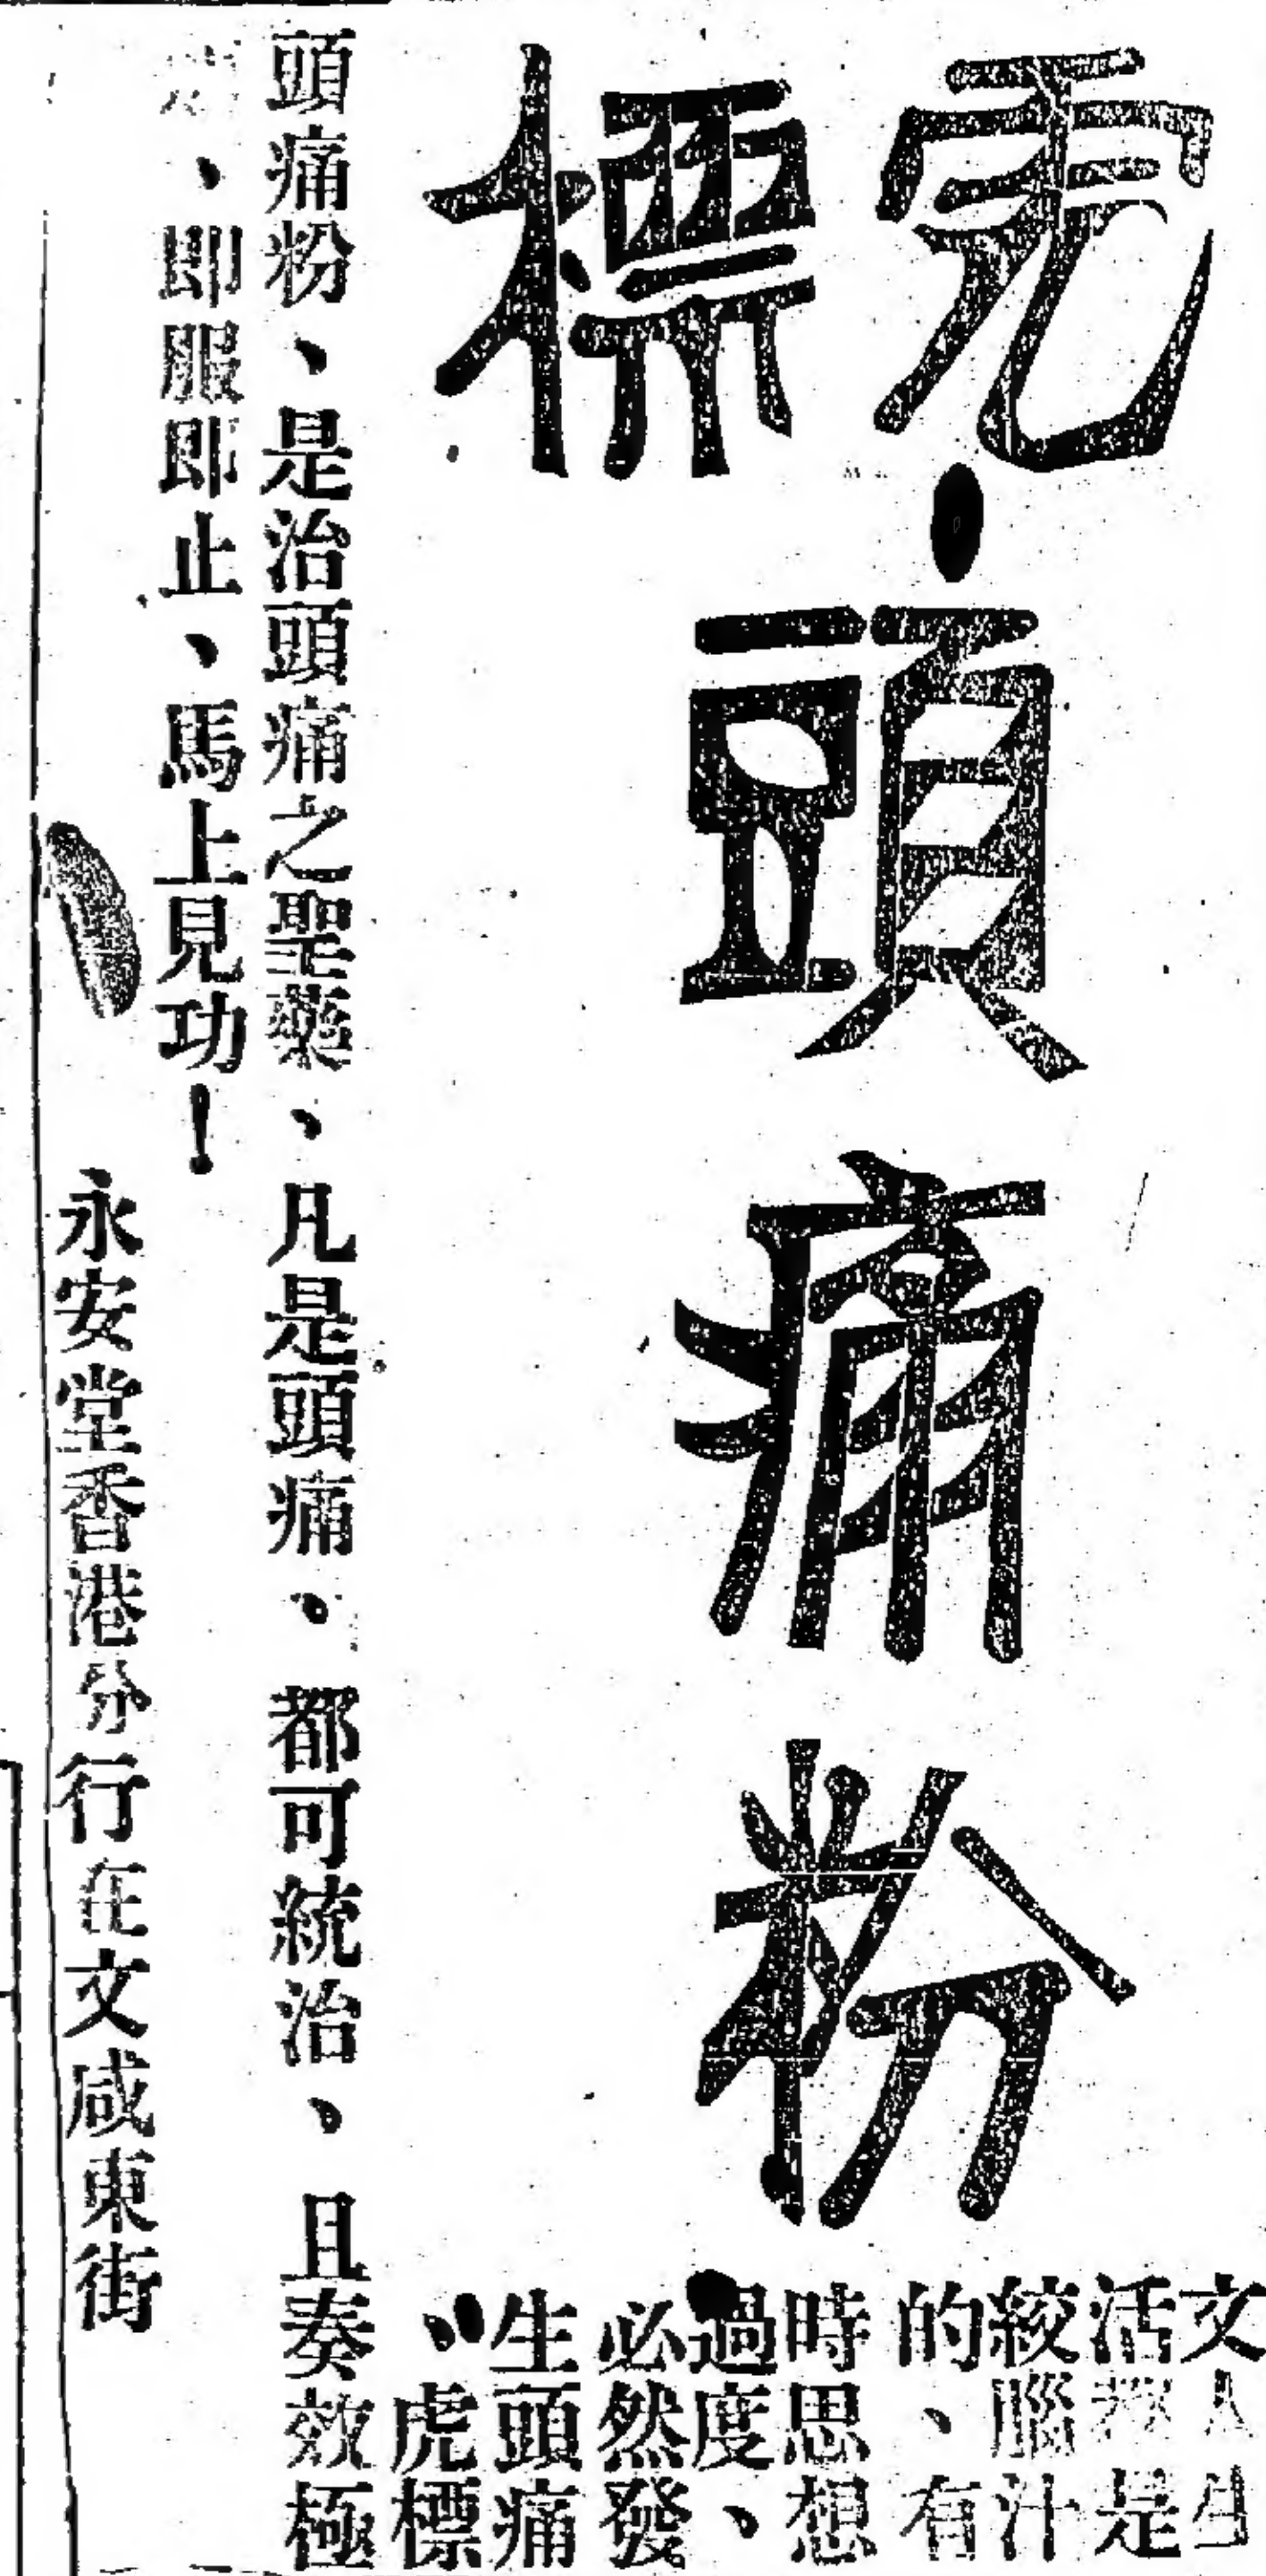 虎標
頭痛粉
文人生
活是
絞腦汁
的、有
時思想
過度、
必然發
生頭痛
、虎標
頭痛粉、是治頭痛之聖藥、凡是頭痛、都可統治、且奏效極
、即服即止、馬上見功！
永安堂香港分行在文咸東街